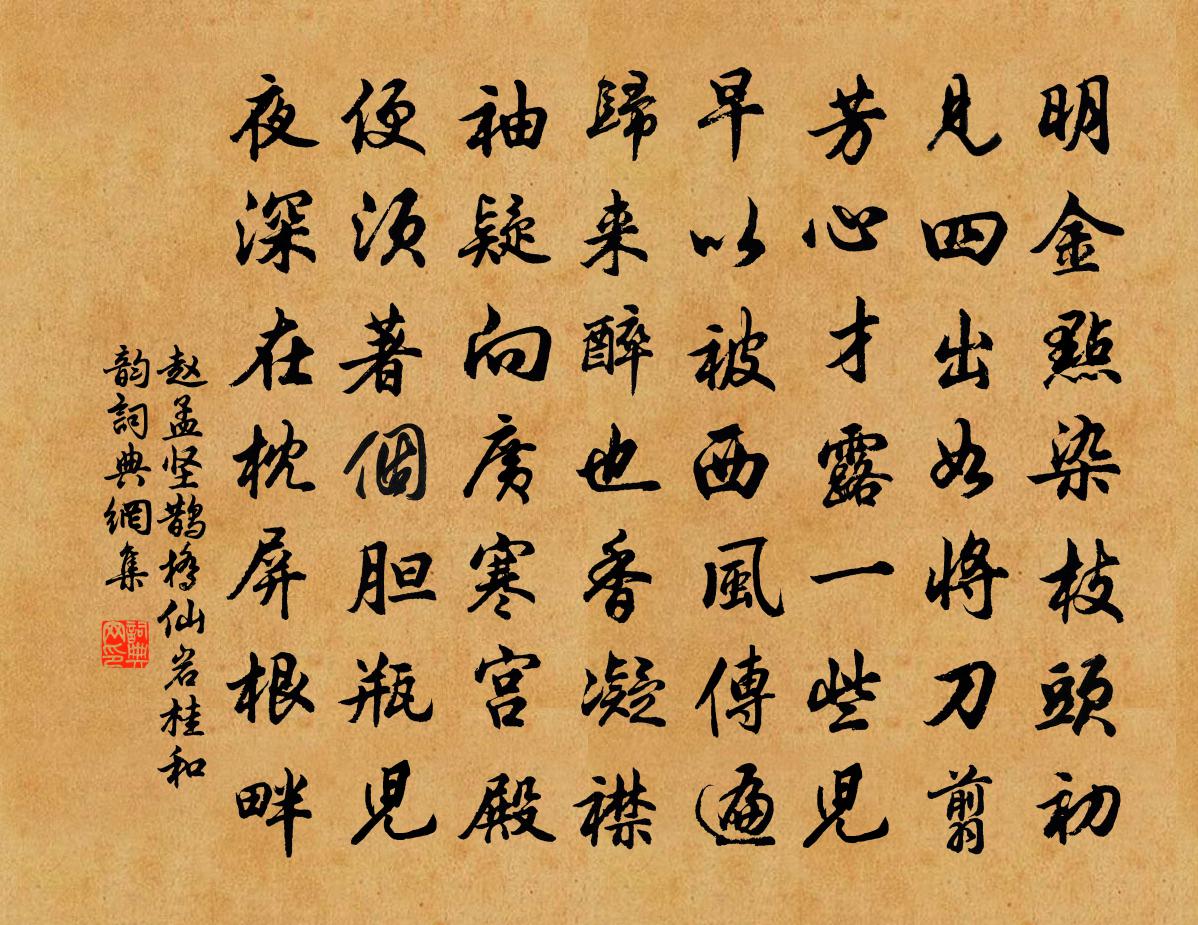 明金點染枝頭初
見四出如將刀剪
芳心才露一些兒
早以被西風傳遍
歸来醉也香凝襟
袖疑向廣寒宫殿
便須著個胆瓶兒
夜深在枕屏根畔
赵孟坚鹊橋仙岩桂和
韵詞典網集
詞典网印